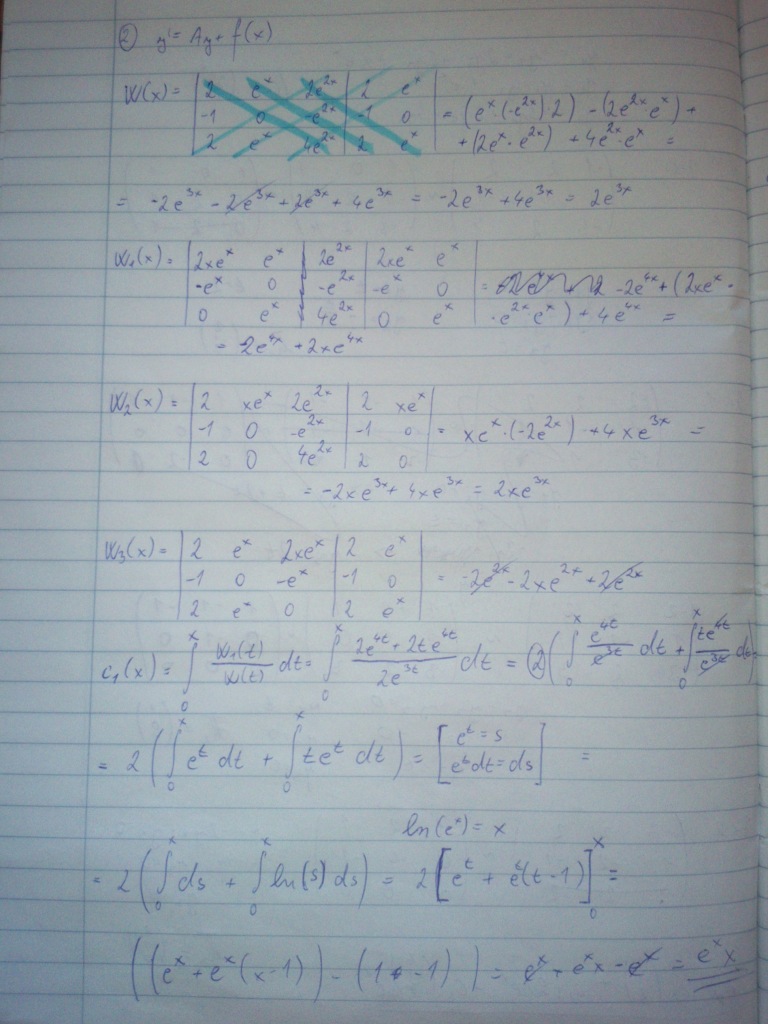 ② y' = Ay + f(x)
W(x) = | 2 e^x 2e^{2x} | 2 e^x
| -1 0 -e^{2x} | -1 0 | = (e^x·(-e^{2x})2) - (2e^{2x}e^x) +
| 2 e^x 4e^{2x} | 2 e^x | + (2e^x·e^{2x}) + 4e^{2x}·e^x =
= -2e^{3x} - 2e^{3x} + 2e^{3x} + 4e^{3x} = -2e^{3x} + 4e^{3x} = 2e^{3x}
W₁(x) = | 2xe^x e^x 2e^{2x} | 2xe^x e^x
| -e^x 0 -e^{2x} | -e^x 0 | = -2e^{4x} + (2xe^x·
| 0 e^x 4e^{2x} | 0 e^x | ·e^{2x}e^x) + 4e^{4x} =
= 2e^{4x} + 2xe^{4x}
W₂(x) = | 2 xe^x 2e^{2x} | 2 xe^x
| -1 0 -e^{2x} | -1 0 | = xe^x·(-2e^{2x}) + 4xe^{3x} =
| 2 0 4e^{2x} | 2 0
= -2xe^{3x} + 4xe^{3x} = 2xe^{3x}
W₃(x) = | 2 e^x 2xe^x | 2 e^x
| -1 0 -e^x | -1 0 | = -2e^{2x} - 2xe^{2x} + 2e^{2x}
| 2 e^x 0 | 2 e^x |
c₁(x) = ∫₀^x W₁(t)/W(t) dt = ∫₀^x (2e^{4t} + 2te^{4t})/2e^{3t} dt = 2(∫₀^x e^{4t}/e^{3t} dt + ∫₀^x te^{4t}/e^{3t} dt)
= 2(∫₀^x e^t dt + ∫₀^x te^t dt) = [e^t = s
e^t dt = ds] =
ln(e^x) = x
= 2(∫₀^x ds + ∫₀^x ln(s) ds) = 2[e^t + e^t(t-1)]₀^x =
((e^x + e^x(x-1)) - (1 - 1)) = e^x + e^x x - e^x = e^x x